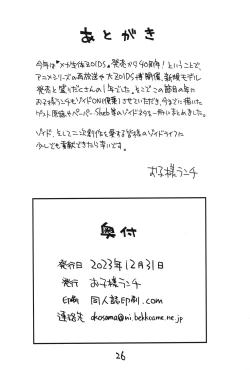 あとがき
今年は「メカ生体ZOIDS」発売から40周年!ということで、
アニメシリーズの再放送や大ZOIDS博開催、新規モデル
発売と盛りだくさんの1年でした。そこでこの節目の年に
お子様ランチもゾイドONLY便乗させていただき、今までに描いた
ゲスト原稿やペーパー、Web等のゾイドネタを一冊にまとめました。
ゾイド、そして二次創作を愛する皆様のゾイドライフに
少しでも貢献できたら幸いです。
お子様ランチ
奥付
発行日 2023年12月31日
発行 お子様ランチ
印刷 同人誌印刷.com
連絡先 okosama@ni.bekkoame.ne.jp
26